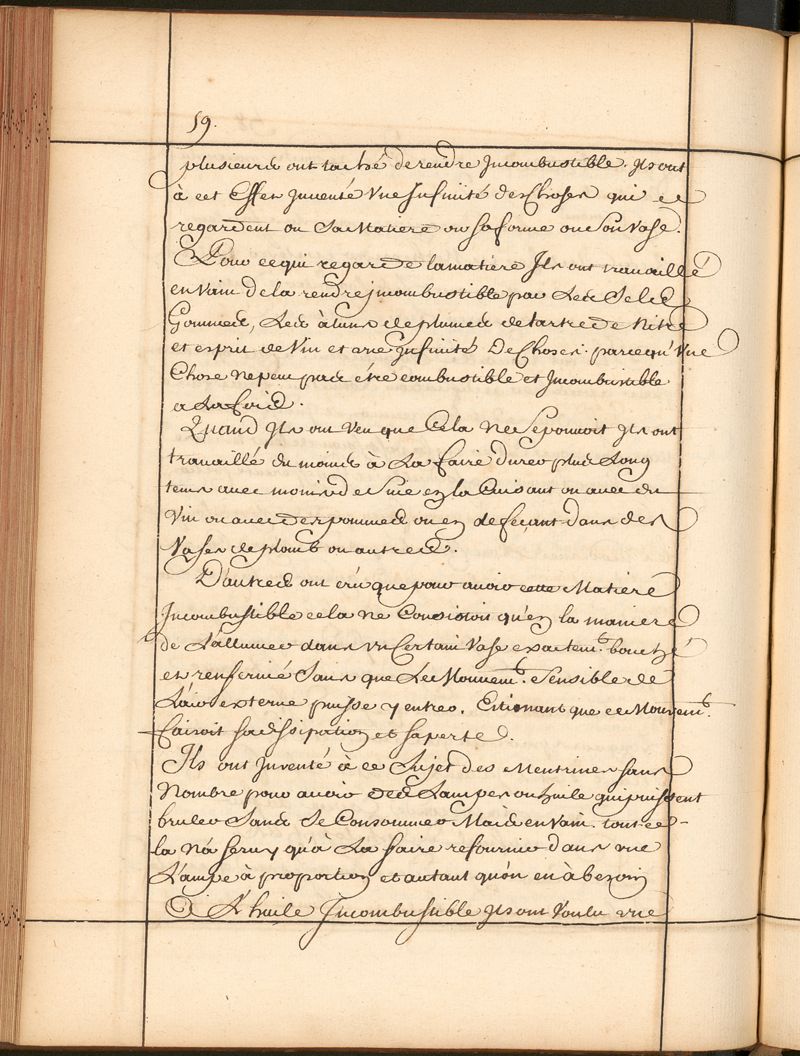 59.
plusieurs ont taché de rendre Jncombustible. Jls ont
à cet Effet Jnventé Vne Jnfinité des Choses qui ce
regardent ou Sa Matiere ou sa forme ou Son Vase.
Pour ce qui regarde la matiere Jls ont travaillé
en Vain de la rendre jncombustible par Les Sels
Gommes, Les àluns de plumes de tartre de Nitre
et esprit de Vin et vne jnfinité De Choses. parce qu'Vne
Chose ne peut pas étre combustible et Jncombustible
a La fois.
Quand Jls ont Veu que Cela Ne Se pouvoit Jls ont
travaillé du moins à La faire durer plus Long
tems avec moins de Suie en la Cuisant ou avec du
Vin ou avec des pommes ou en defeçant dans des
Vases de plomb ou autres.
D'autres ont crû que pour avoir cette Matiere
Jncombustible cela ne Consistoit qu'en la maniere
de L'allumer dans vn Certain Vase exactemt. bouché
et renfermé Sans que Le Mouvemt. Sensible de
L'air externe puisse y entrer. Estimant que ce Mouvemt.
fairoit sa dissipation et sa perte.
Jls ont Jnventé à ce Sujet des Mentrines sans
Nombre pour avoir des Lampes ou huile qui puissent
bruler Sans Se Consommer Mais en Vain. tout ce-
la N'a Servy qu'à La faire refournir dans vne
L'ampe à proportion et autant qu'on en à bezoin
L'huile Jncombustible Jls ont Voulu vne